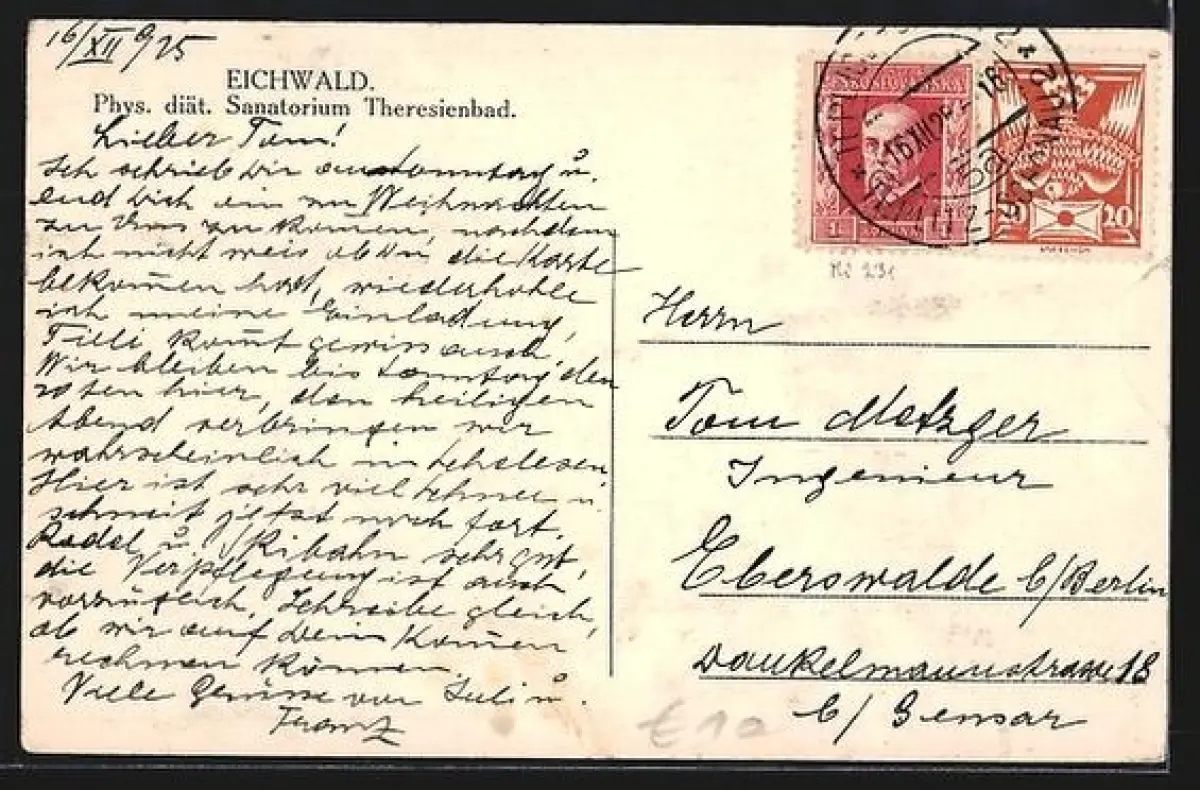 16/XII 925
EICHWALD.
Phys. diät. Sanatorium Theresienbad.
Lieber Tom!
Ich schrieb Dir am Sonntag u.
lud Dich ein zu Weihnachten
zu uns zu kom̄en, nachdem
ich nicht weis ob Du die Karte
bekom̄en hast, wiederhohle
ich meine Einladung,
Tilli kom̄t gewiss auch.
Wir bleiben bis Sonntag, den
20ten hier, den heiligen
Abend verbringen wir
wahrscheinlich in
Hier ist sehr viel Schnee u.
schneit jetzt noch fort.
Rodel u. Skibahn sehr gut,
die Verpflegung ist auch
vorzüglich, Schreibe gleich,
ob wir auf Dein Kom̄en
rechnen können.
Viele Grüsse von Juli u.
Franz
ČESKOSLOVENSKÁ
1 KORUNA 1
20
16.XII.25
Mi 231
Herrn
Tom Metzger
Ingenieur
Eberswalde b/Berlin
Dankelmannstrasse 18
b/ Gensar
€ 10